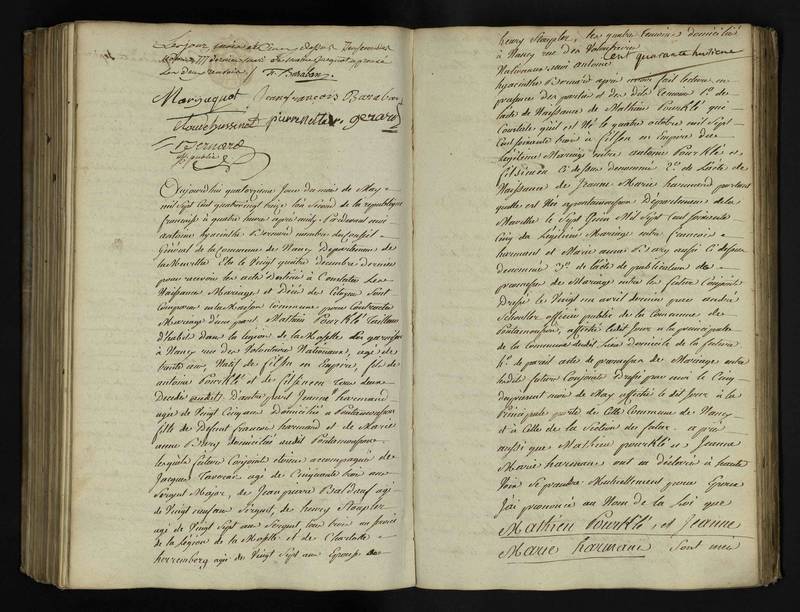 Les jour, mois et an
F. Baraban
Marguguot Jean francois Baraban
Louis hussenot pierre gerard
Bernard
off. public
Aujourd'hui quatorzieme Jour du mois de May
mil Sept Cent quatrevingt treize l'an Second de la republique
francaise à quatre heure après midy. Pardevant moi
antoine hyacinthe Bernard membre du Conseil
General de la Commune de Nancy Departement de
la Meurthe Elu le Vingt quatre decembre dernier
pour recevoir les acte destinés à Constater Les
Naissance Mariage et Décès des Citoyens Sont
Comparus en la Maison Commune pour Contracter
Mariage d'une part, Mathieu Pourklé Tailleur
d'habit dans la Légion de la Moselle en garnison
à Nancy rue des Volontaire Nationaux, agé de
trente ans, Natif de filsen en Empire, fils de
antoine Pourklé et de Elisineen tous deux
Décédé audit d'autre part Jeanne harmand
agé de Vingt Cinq ans Domiciliée à Pontamousson
fille de Defunt francois harmand et de Marie
anne Bary domiciliée audit Pontamousson.
lesquels futurs Conjoints étoient accompagnés de
Jacques agé de Cinquante trois ans
Sergent Major, de Jean pierre agé
de Vingt neuf ans Sergent, de henry Stoupler
agé de Vingt Sept ans Sergent, tous trois au Service
de la Légion de la Moselle et de Charlotte
herremberg agé de Vingt Sept ans Epouse de
henry Stoupler, les quatre temoins domiciliés
à Nancy rue des Volontaires
Cent quarante huitieme
Nationaux, moi antoine
hyacinthe Bernard après avoir fait lecture en
presence des parties et des dits temoins 1.° de
l'acte de Naissance de Mathieu Pourklé qui
Constate qu'il est Né le quatre octobre mil Sept
Cent soixante trois à filsen en Empire du
Légitime Mariage entre antoine Pourklé et
Elisineen Ci dessus denommé 2.° de l'acte de
Naissance de Jeanne Marie harmand portant
quelle est Née apontamousson Département de la
Meurthe le Sept Juin Mil Sept Cent Soixante
Cinq du Légitime Mariage entre francois
harmand et Marie anne Bary aussi Ci dessus
denommé 3.° de l'acte de publication de
promesse de Mariage entre les futurs Conjoints
Dressé le Vingt un avril dernier par andré
Schouller officier public de la Commune de
Pontamousson, affiché ledit Jour à la principale
de la Commune dudit Lieu Domicile de la future
4.° de pareil acte de promesse de Mariage entre
lesdits futurs Conjoints Dressé par moi le Cinq
du present mois de May affiché le dit Jour à la
Principale porte de Cette Commune de Nancy
et à Celle de la Section du futur. après
aussi que Mathieu pourklé et Jeanne
Marie harmand ont eu déclaré à haute
Voix Se prendre Mutuellement pour Epoux
J'ai prononcé au Nom de la Loi que
Mathieu Pourklé, et Jeanne
Marie harmand Sont unis